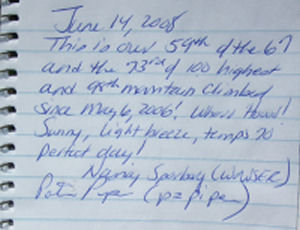 June 14, 2008
This is our 59th of the 67
and the 73rd of 100 highest
and 98th mountain climbed
since May 6, 2006! Whoo Hooo!
Sunny, light breeze, temps 70
Perfect day!
Nancy
(p=piper)